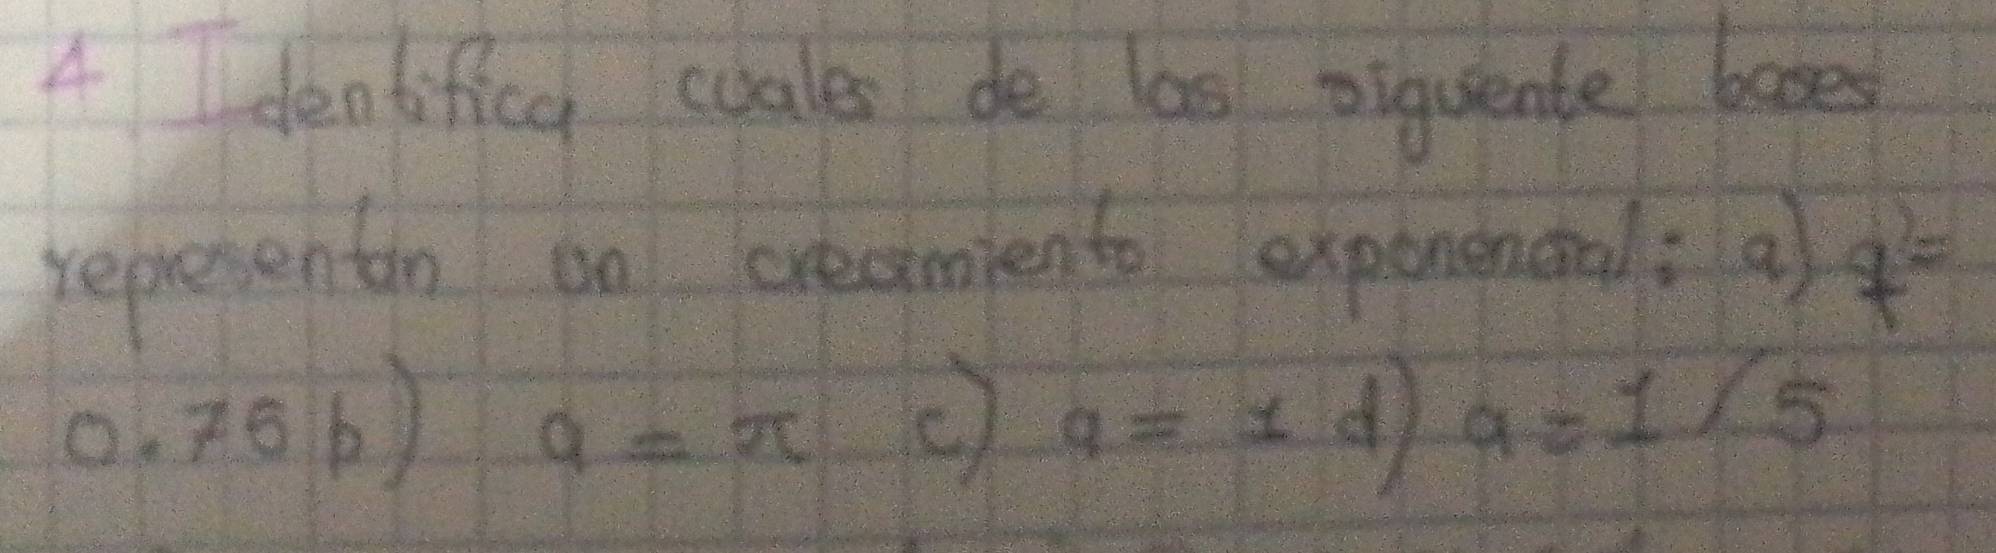 4 Identifica cuales de las siguiente bases
representan un crecimiento exponencial: a) a =
0.75 b) a = π c) a = 1 d) a = 1/5